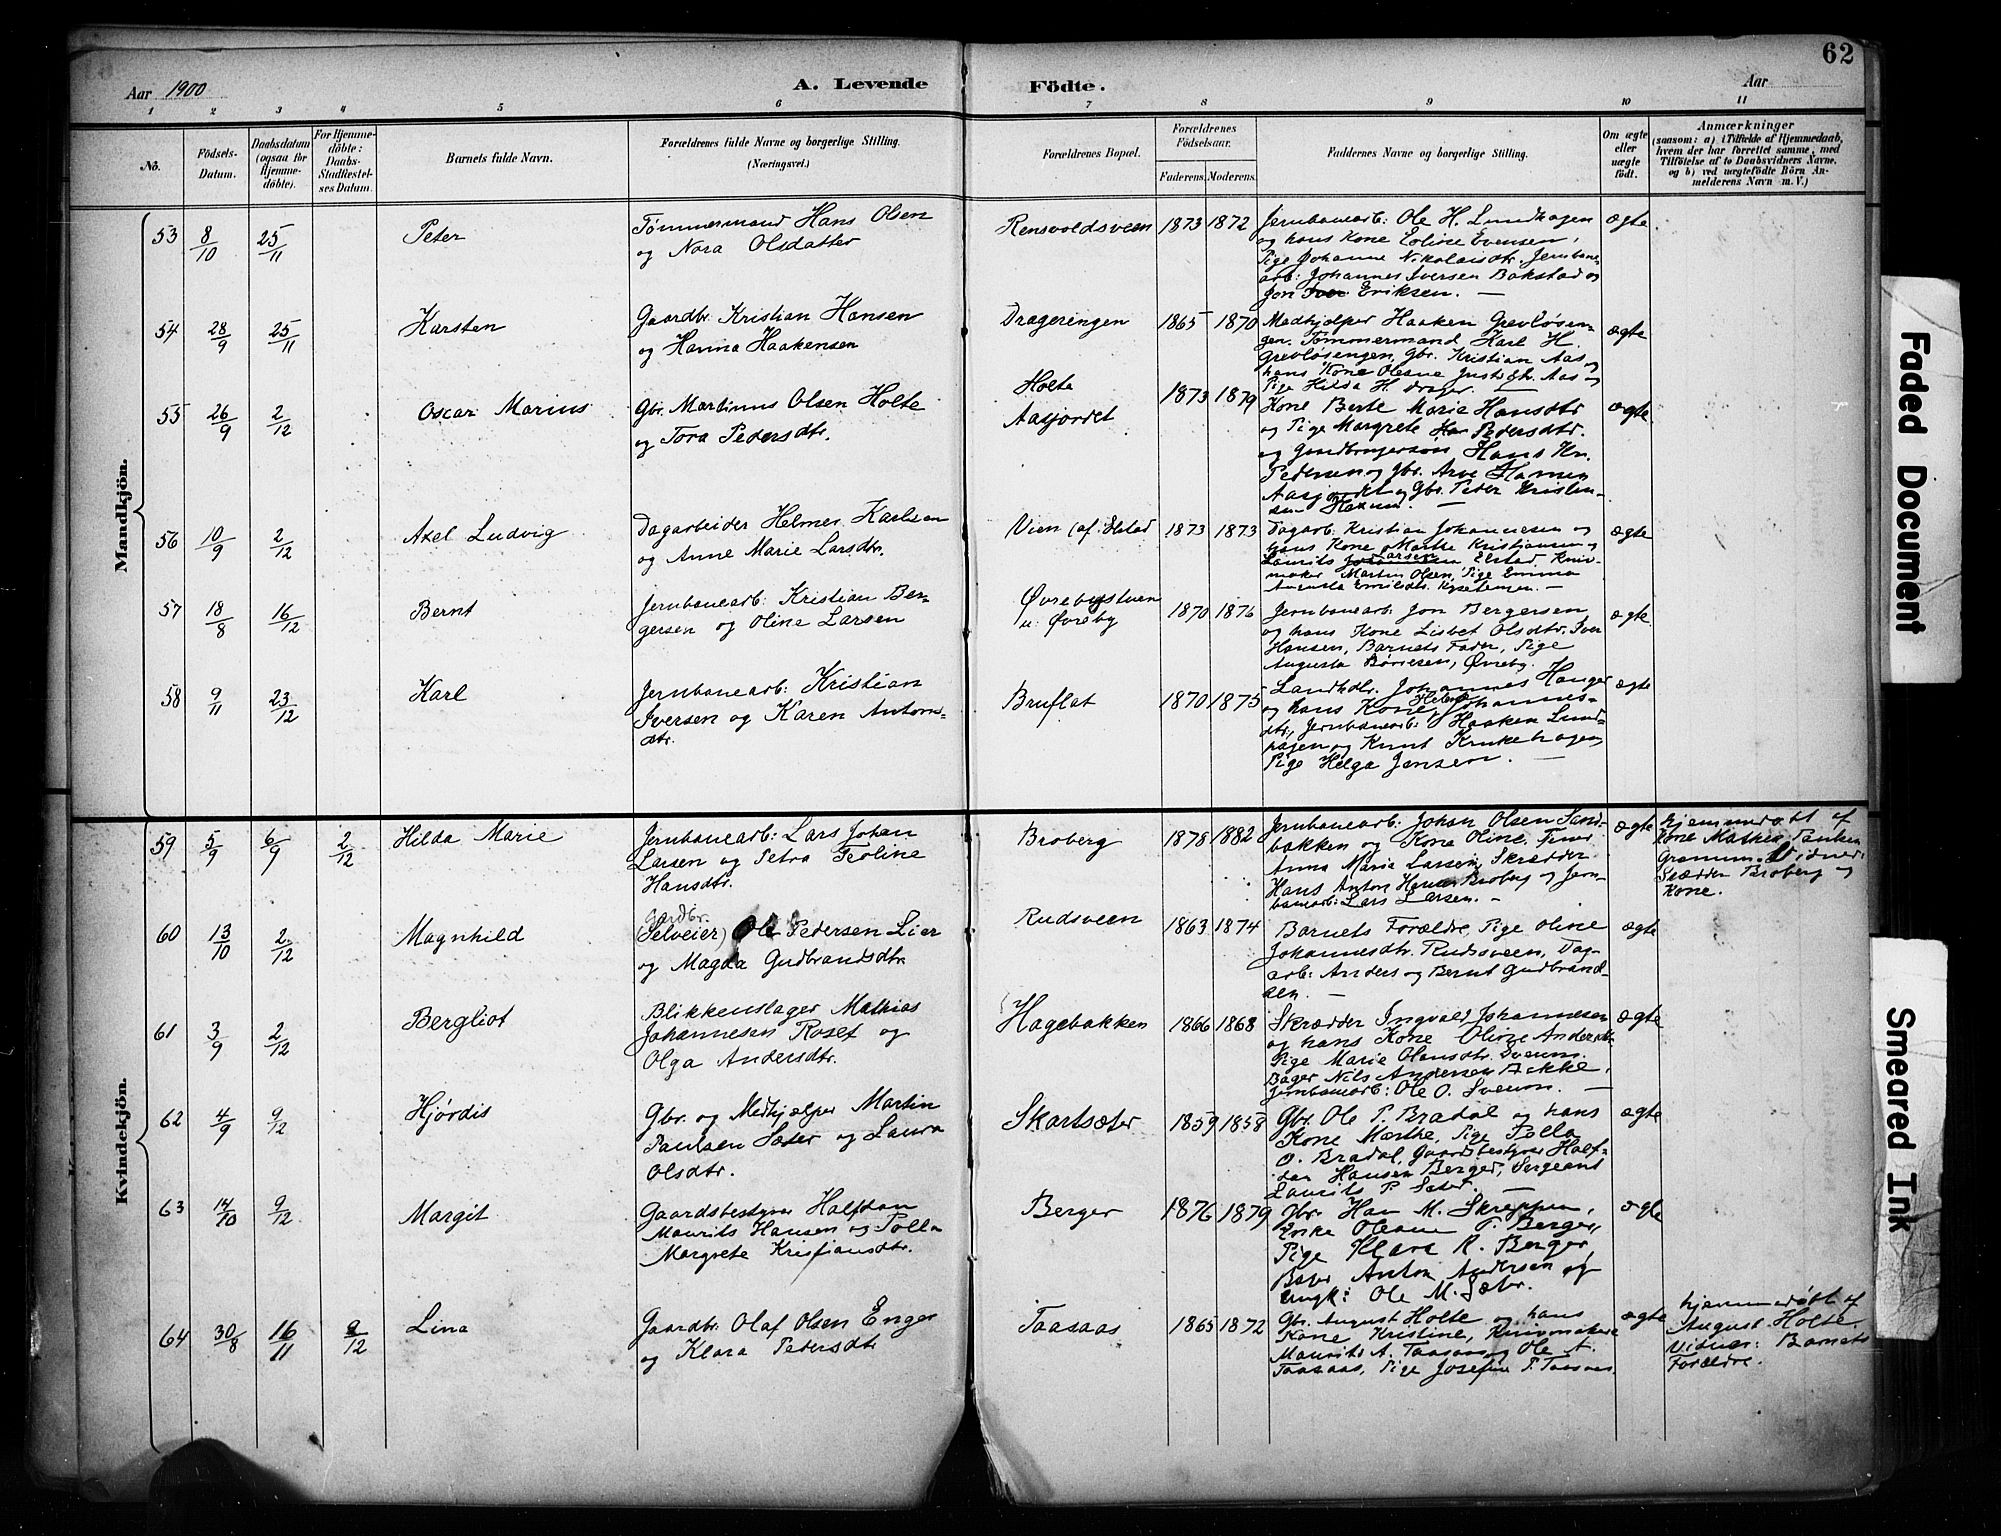 62
Aar 1900
A. Levende
Födte.
Aar
1 2 3 4 5 6 7 8 9 10 11
No.
Födsels-
Datum.
Daabsdatum
(ogsaa for
Hjemme-
döbte).
For Hjemme-
döbte:
Daabs-
Stadfæstel-
ses Datum.
Barnets fulde Navn.
Forældrenes fulde Navne og borgerlige Stilling.
(Næringsvei.)
Forældrenes Bopæl.
Forældrenes
Födselsaar.
Faderens. Moderens.
Faddernes Navne og borgerlige Stilling.
Om ægte
eller
uægte
födt.
Anmærkninger
(saasom: a) i Tilfælde af Hjemmedaab,
hvem der har forrettet samme, med
Tilföielse af to Daabsvidners Navne,
og b) ved uægtefödte Börn An-
melderens Navn m. V.)
Mandkjön.
53 8/10 25/11 Peter
Tømmermand Hans Olsen
og Nora Olsdatter
Rensvoldsveen 1873 1872
Jernbanearb: Ole H. Lundhagen
og hans Kone Eoline Evensen,
Pige Johanne Nikolaisdtr. Jernbane
arb: Johannes Iversen Bakstad og
Jon Eriksen. —
ægte
54 28/9 25/11 Karsten
Gaardbr. Kristian Hansen
og Hanna Haakensen
Drageringen 1865 1870
Medhjelper Haaken Grevløsen-
gen. Tømmermand Karl H.
Grevløsengen, Gbr. Kristian Aas og
hans Kone Oleane Aas og
Pige Hilda H. Drager.
ægte
55 26/9 2/12 Oscar Marius
Gbr. Martinus Olsen Holte
og Tora Pedersdtr.
Holte
Aasjordet 1873 1879
Kone Berte Marie Hansdtr
og Pige Margrete Pedersdtr.
og Gaardbrugersøn Hans Kr.
Pedersen og Gbr. Arve Hansen
Aasjordet og Gbr. Peder Kristian-
sen —
ægte
56 10/9 2/12 Axel Ludvig
Dagarbeider Helmer Karlsen
og Anne Marie Larsdtr.
Vien (af: Elstad 1873 1873
Dagarb. Kristian Johannesen og
hans Kone Marthe Kristiansen og
Laurits Larsen Elstad, Kniv-
maker Martin Olsen, Pige Emma
Augusta Emilsdtr. —
ægte
57 18/8 16/12 Bernt
Jernbanearb: Kristian Ber-
gersen og Oline Larsen
Øvrebystuen
u: Øvreby 1870 1876
Jernbanearb: Jon Bergersen
og hans Kone Lisbet Olsdtr. Iver
Hansen, Barnets Fader, Pige
Augusta Børresen, Øvreby.
ægte
58 9/11 23/12 Karl
Jernbanearb: Kristian
Iversen og Karen Antons-
dtr.
Bruflat 1870 1875
Landhdlr. Johannes Hanger
og hans Kone Helene Johannes-
dtr., Jernbanearb: Haaken Lund-
hagen og Knut Krukehagen,
Pige Helga Jensen. —
ægte
Kvindekjön.
59 5/9 6/9 2/12 Hilda Marie
Jernbanearb: Lars Johan
Larsen og Petra Teoline
Hansdtr.
Broberg 1878 1882
Jernbanearb: Johan Olsen Sand-
bakken og Kone Oline. Fruer
Anna Maria Larsen, Skrædder
Hans Anton Hansen Broberg og Jern-
banearb: Lars Larsen. —
ægte
hjemmedøbt af
Kone Mathea Panken
Gramum. Vidner:
Skrædder Broberg og
Kone.
60 13/10 2/12 Magnhild
Gardbr.
(Selveier) Ole Pedersen Lier
og Magda Gudbrandsdtr.
Rudsveen 1863 1874
Barnets Forældre, Pige Oline
Johannesdtr. Rudsveen, Dag-
arb: Anders og Bernt Gudbrand-
sen. —
ægte
61 3/9 2/12 Bergliot
Blikkenslager Mathias
Johannesen Roset og
Olga Andersdtr.
Hagebakken 1866 1868
Skrædder Ingvald Johannesen
og hans Kone Oline Andersdtr.
Pige Marie Olausdtr. Sveum.
Bager Nils Andersen Bakke,
Jernbanearb: Ole O. Sveum. —
ægte
62 4/9 9/12 Hjørdis
Gbr. og Medhjælper Martin
Paulsen Sæter og Laura
Olsdtr.
Skartsæter 1859 1858
Gbr. Ole P. Bradal og hans
Kone Marthe, Pige Polla
O. Bradal, Gaardsbestyrer Half-
dan Hansen Berger, Sergeant
Laurits P. Sæter. —
ægte
63 14/10 9/12 Margit
Gaardsbestyrer Halfdan
Maurits Hansen og Polla
Margrete Kristiansdtr.
Berger 1876 1879
Gbr. Han M. Skreppen,
Enke Oleane P. Berger,
Pige Klara K. Berger,
Bager Anton Andersen og
Ungk: Ole M. Sæter.
ægte
64 30/8 16/11 9/12 Lina
Gaardbr. Olaf Olsen Enger
og Klara Pedersdtr
Taasaas 1865 1872
Gbr. August Holte og hans
Kone Kristine, Knivmaker
Maurits A. Taasaas og Ole A.
Taasaas, Pige Josefine P. Taasaas.
ægte
hjemmedøbt af
August Holte.
Vidner: Barnets
Forældre.
Faded Document
Smeared Ink